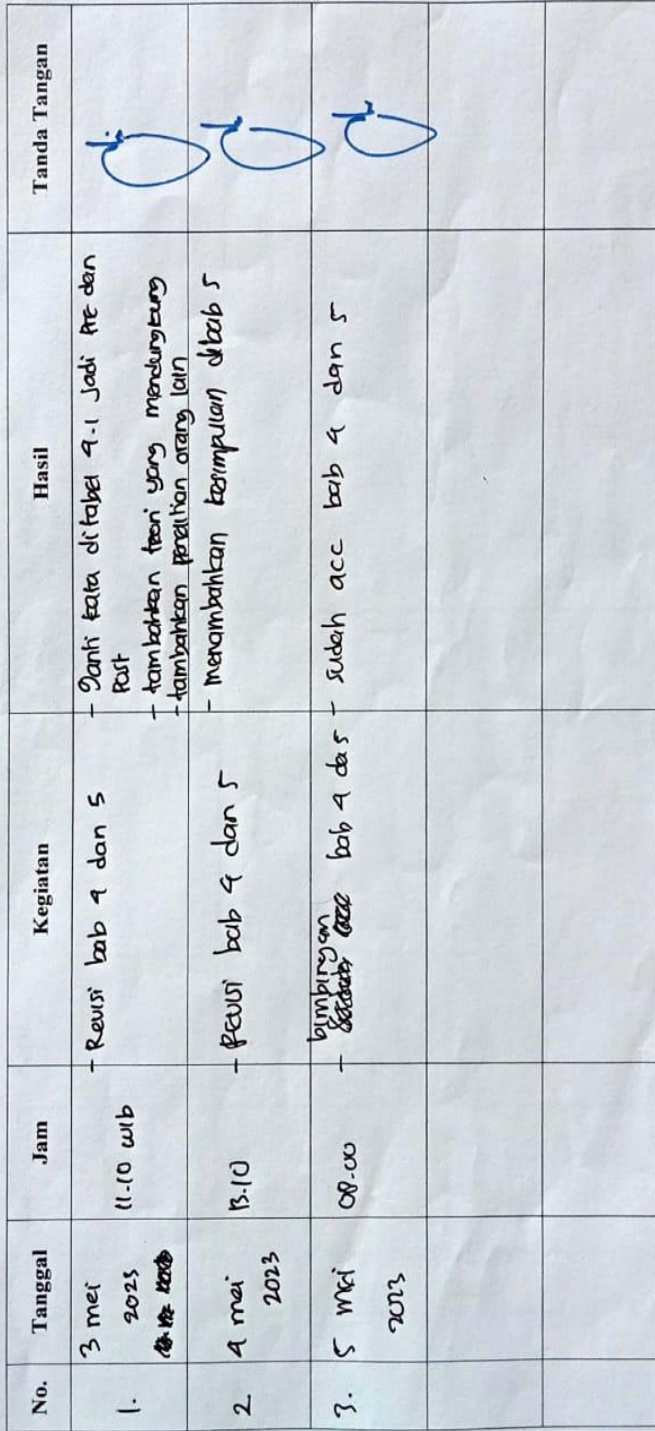 No. Tanggal Jam Kegiatan Hasil Tanda Tangan
1. 3 mei 2023 11-10 wib - Revisi bab 4 dan 5 - Ganti kata ditabel 4.1 Jadi Pre dan
Post
- tambahkan teori yang mendungkung
- tambahkan penelitian orang lain
2 4 mei 2023 13.10 - Revisi bab 4 dan 5 - menambahkan kesimpulan dibab 5
3. 5 mei 2023 08.00 - bimbingan bab 4 da 5 - sudah acc bab 4 dan 5